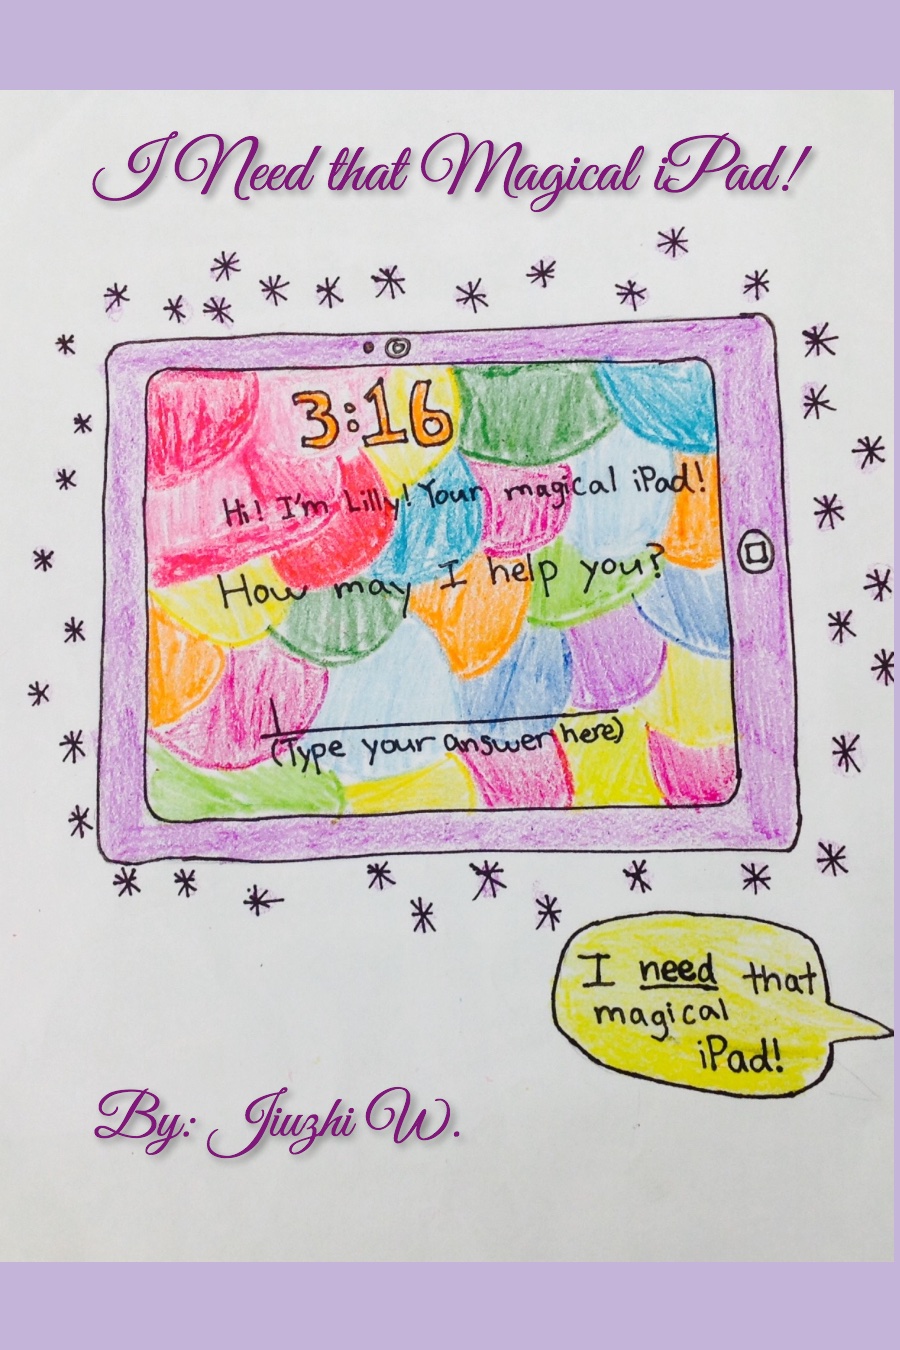 I Need that Magical iPad!
3:16
Hi! I'm Lilly! Your magical iPad!
How may I help you?
(Type your answer here)
I need that
magical
iPad!
By: Jiuzhi W.